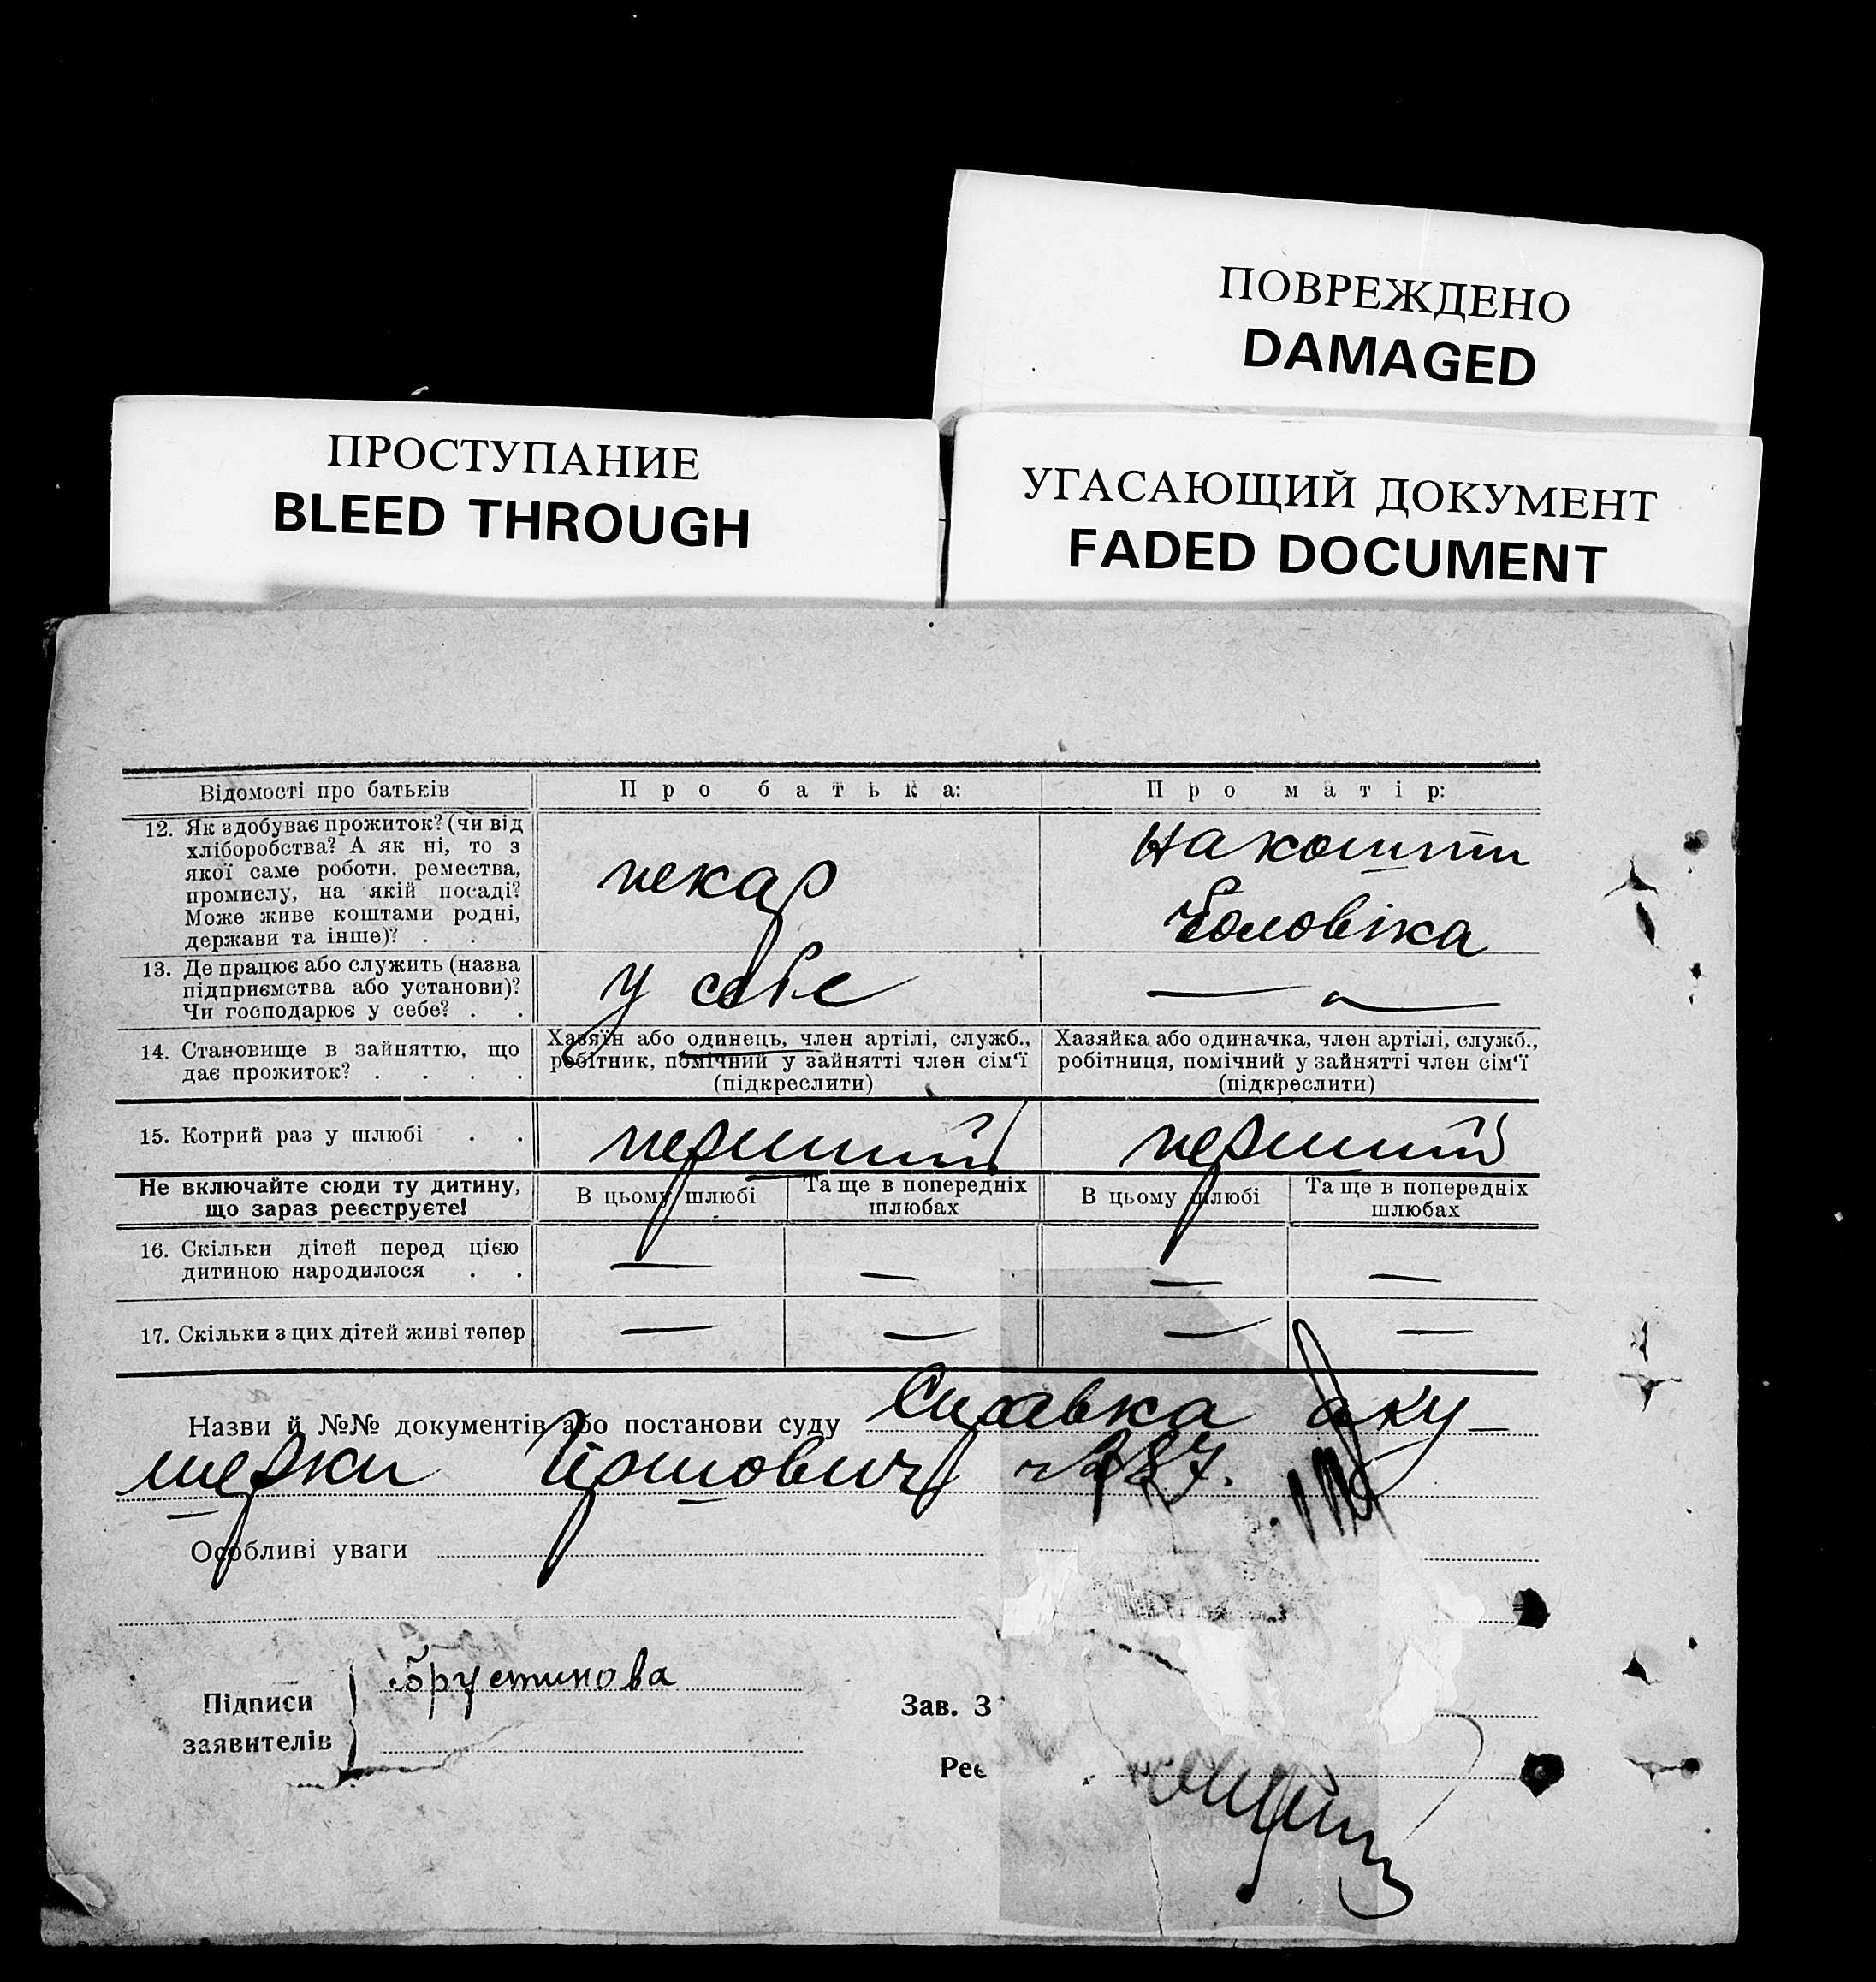 ПОВРЕЖДЕНО
DAMAGED
ПРОСТУПАНИЕ
BLEED THROUGH
УГАСАЮЩИЙ ДОКУМЕНТ
FADED DOCUMENT
Відомості про батьків
Про батька:
Про матір:
12. Як здобуває прожиток? (чи від
хліборобства? А як ні, то з
якої саме роботи, ремества,
промислу, на якій посаді?
Може живе коштами родні,
держави та інше)? . .
пекар
На кошти
чоловіка
13. Де працює або служить (назва
підприємства або установи)?
Чи господарює у себе? . .
у себе
14. Становище в зайняттю, що
дає прожиток? . . . .
Хазяїн або одинець, член артілі, служб.,
робітник, помічний у зайнятті член сім'ї
(підкреслити)
Хазяйка або одиначка, член артілі, служб.,
робітниця, помічний у зайнятті член сім'ї
(підкреслити)
15. Котрий раз у шлюбі . .
перший
перший
Не включайте сюди ту дитину,
що зараз реєструєте!
В цьому шлюбі
Та ще в попередніх
шлюбах
В цьому шлюбі
Та ще в попередніх
шлюбах
16. Скільки дітей перед цією
дитиною народилося . .
— — — —
17. Скільки з цих дітей живі тепер
— — — —
Назви й №№ документів або постанови суду Справка аку-
шерки
Особливі уваги
Підписи
заявителів
Брустинова
Зав. З
Реє